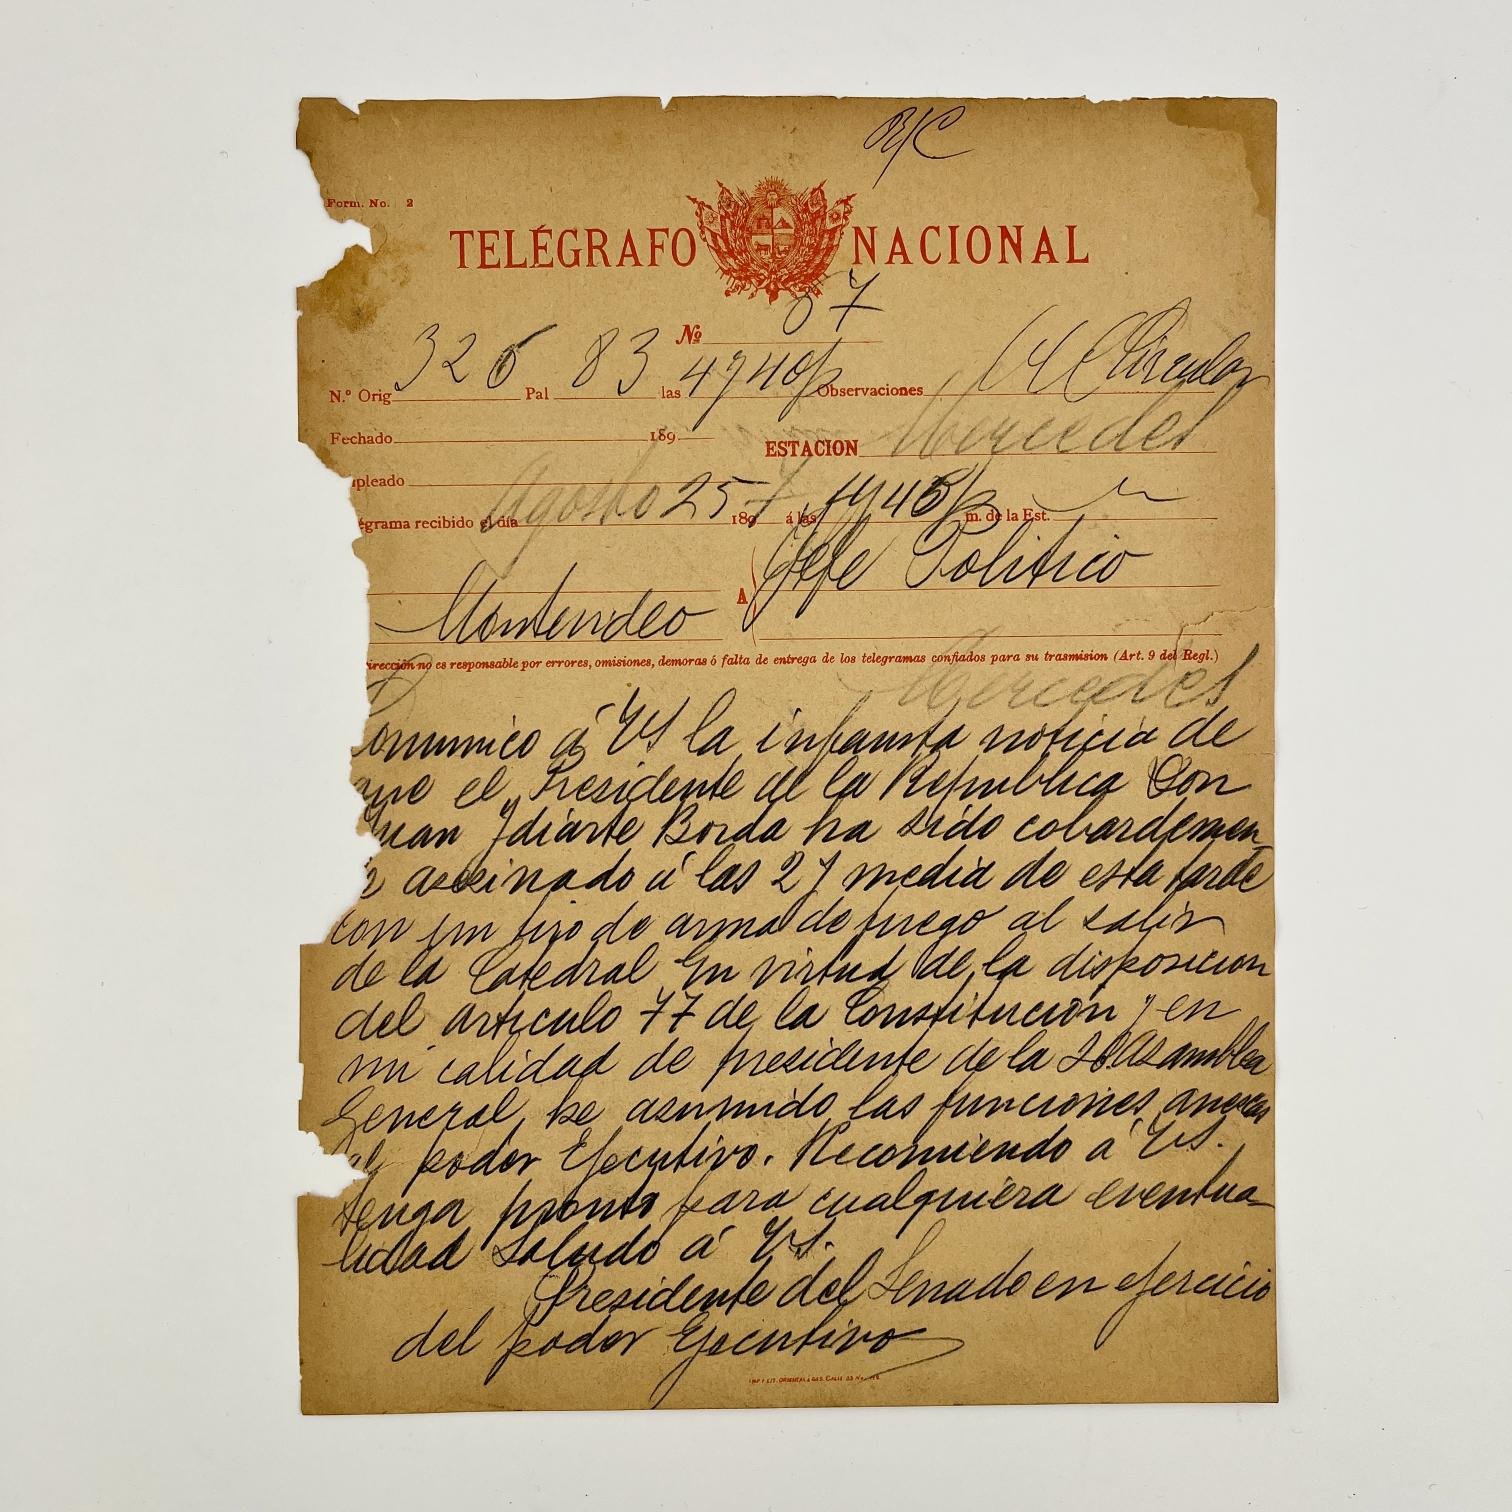 R/C
Form. No. 2
TELÉGRAFO NACIONAL
Nº 87
N.º Orig 326 Pal 83 las 4y40p Observaciones Circular
Fechado 189
ESTACION Mercedes
pleado
grama recibido el día Agosto 25 1897 á las 4y45p m. de la Est.
A Jefe Politico
Montevideo
irección no es responsable por errores, omisiones, demoras ó falta de entrega de los telegramas confiados para su trasmision (Art. 9 del Regl.)
Mercedes
omunico á VS la infausta noticia de
que el Presidente de la Republica Don
Juan Ydiarte Borda ha sido cobardemen
asesinado á las 2 y media de esta tarde
con un tiro de arma de fuego al salir
de la Catedral En virtud de la disposicion
del articulo 77 de la Constitución y en
mi calidad de presidente de la Asamblea
General he asumido las funciones anexas
al poder Ejecutivo. Recomiendo á VS.
tenga pronto para cualquiera eventua-
lidad Saludo á VS.
Presidente del Senado en ejercicio
del poder Ejecutivo